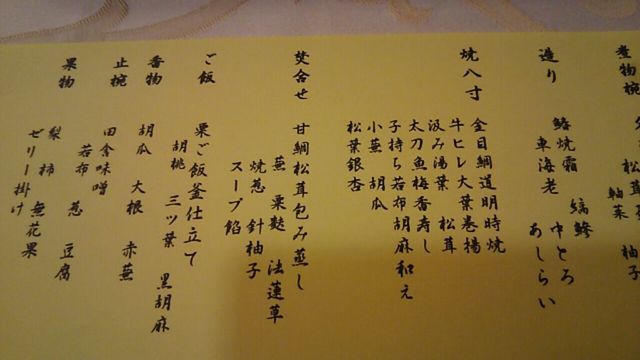 煮物椀
松茸
軸菜 柚子
造り
鰆焼霜 縞鯵 中とろ
車海老 あしらい
焼八寸
金目鯛道明時焼
牛ヒレ大葉巻揚
汲み湯葉 松茸
太刀魚梅香寿し
子持ち若布胡麻和え
小蕪 胡瓜
松葉銀杏
焚合せ
甘鯛松茸包み蒸し
蕪 粟麩 法蓮草
焼葱 針柚子
スープ餡
ご飯
栗ご飯釜仕立て
胡桃 三ツ葉 黒胡麻
香物
胡瓜 大根 赤蕪
止椀
田舎味噌
若布 葱 豆腐
果物
梨 柿 無花果
ゼリー掛け